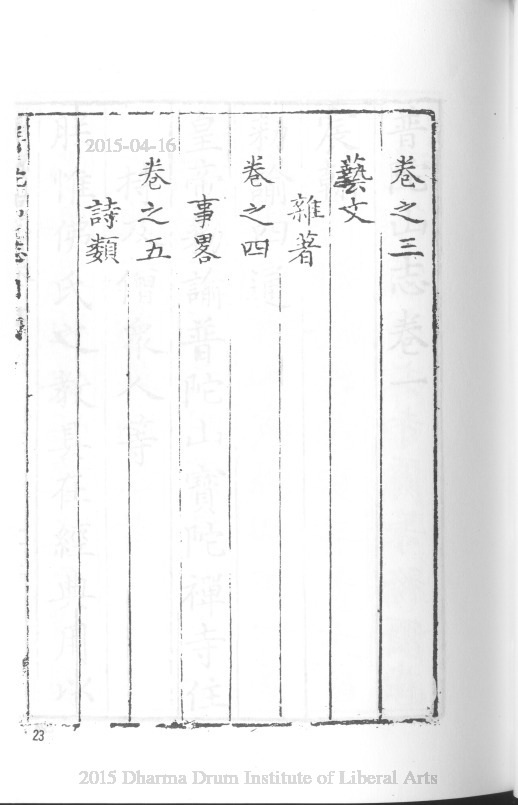 卷之三
藝文
雜著
卷之四
事畧
卷之五
詩類
2015-04-16
23
2015 Dharma Drum Institute of Liberal Arts